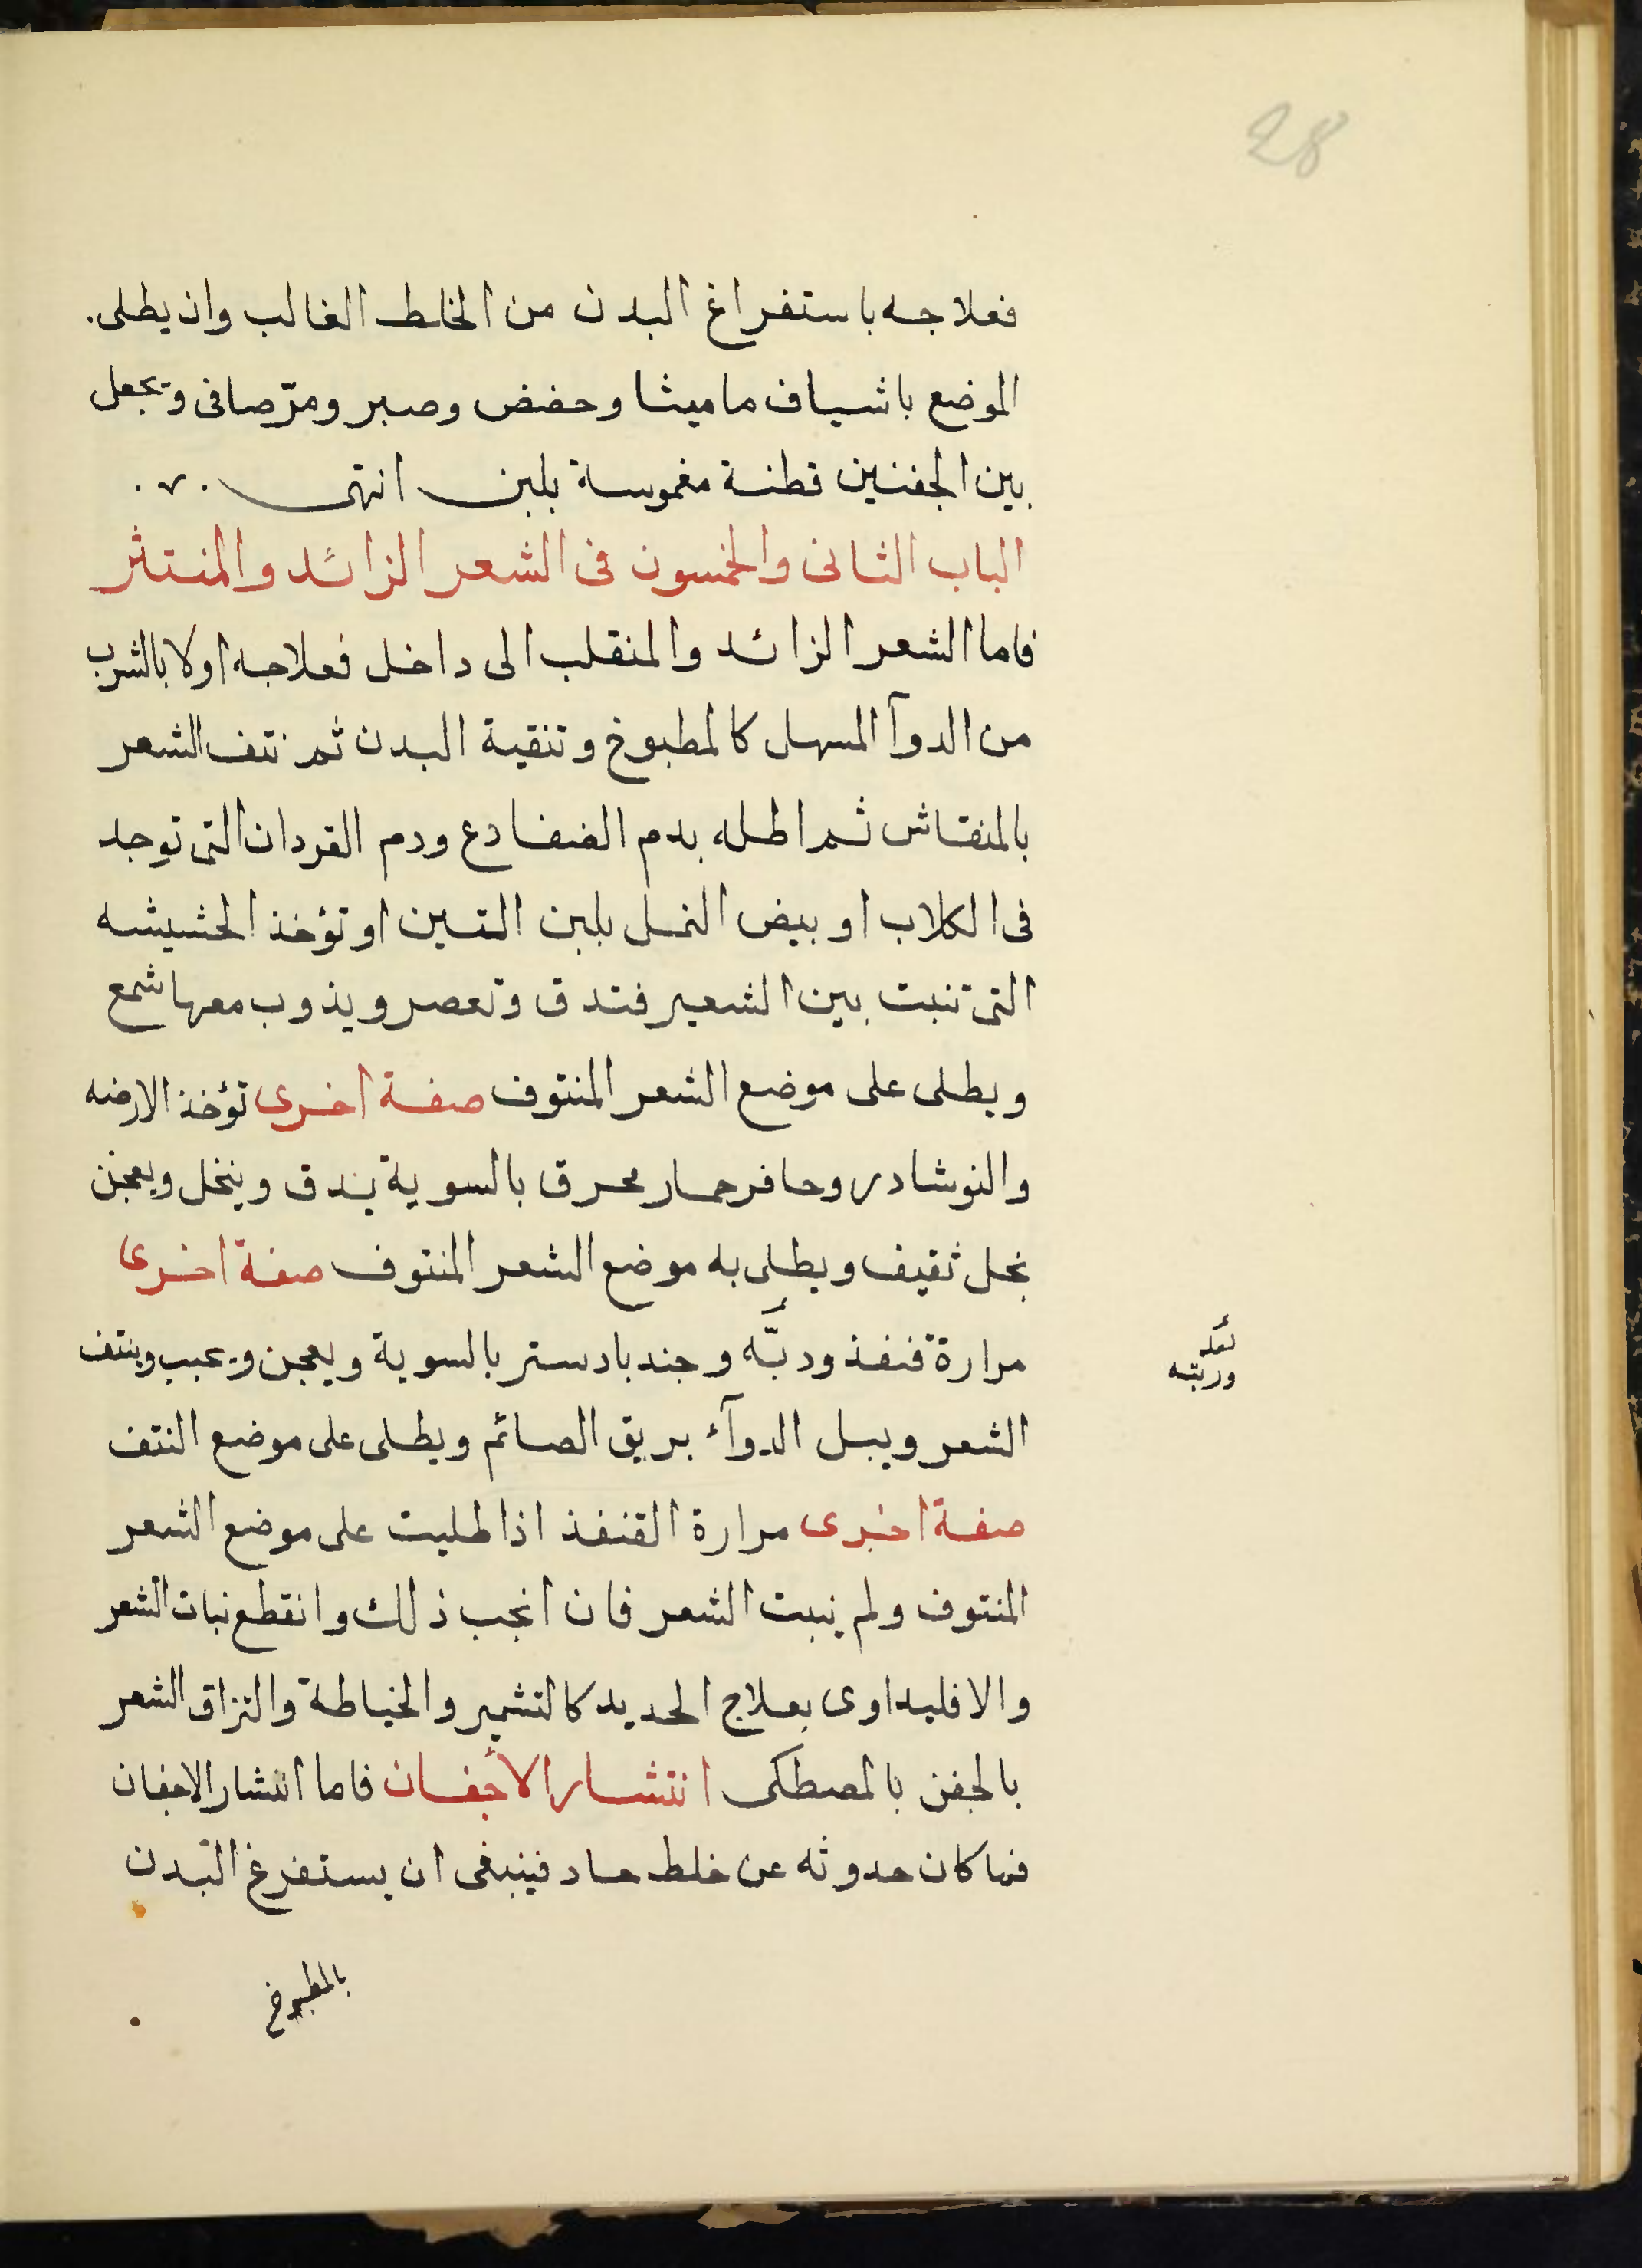 28
فعلاجه باستفراغ البدن من الخلط الغالب وان يطلى.
الموضع باشياف ماميثا وحضض وصبر ومرّ صافى وتجعل
بين الجفنين قطنة مغموسة بلبن انتهى
الباب الثانى والخمسون فى الشعر الزائد والمنتثر
فاما الشعر الزائد والمنقلب الى داخل فعلاجه اولا بالشرب
من الدوآ المسهل كالمطبوخ وتنقية البدن ثم نتف الشعر
بالمنقاش ثم اطله بدم الضفادع ودم القردان التى توجد
فى الكلاب او بيض النمل بلبن التين او تؤخذ الحشيشه
التى تنبت بين الشعير فتدق وتعصر ويذوب معها شمع
ويطلى على موضع الشعر المنتوف صفة اخرى تؤخذ الارضه
والنوشادر وحافر حمار محرق بالسوية يدق وينخل ويعجن
بخل ثقيف ويطلى به موضع الشعر المنتوف صفة اخرى
مرارة قنفذ ودبَّه وجندبادستر بالسوية ويعجن ويحبب وينتف
لعله
وربته
الشعر ويبل الدوآء بريق الصائم ويطلى على موضع النتف
صفة اخرى مرارة القنفذ اذا طليت على موضع الشعر
المنتوف ولم ينبت الشعر فان انجب ذلك وانقطع نبات الشعر
والا فليداوى بعلاج الحديد كالتشمير والخياطة والتزاق الشعر
بالجفن بالمصطكى انتشار الأجفان فاما انتشار الاجفان
فما كان حدوثه عن خلط حاد فينبغى ان يستفرغ البدن
بالمطبوخ